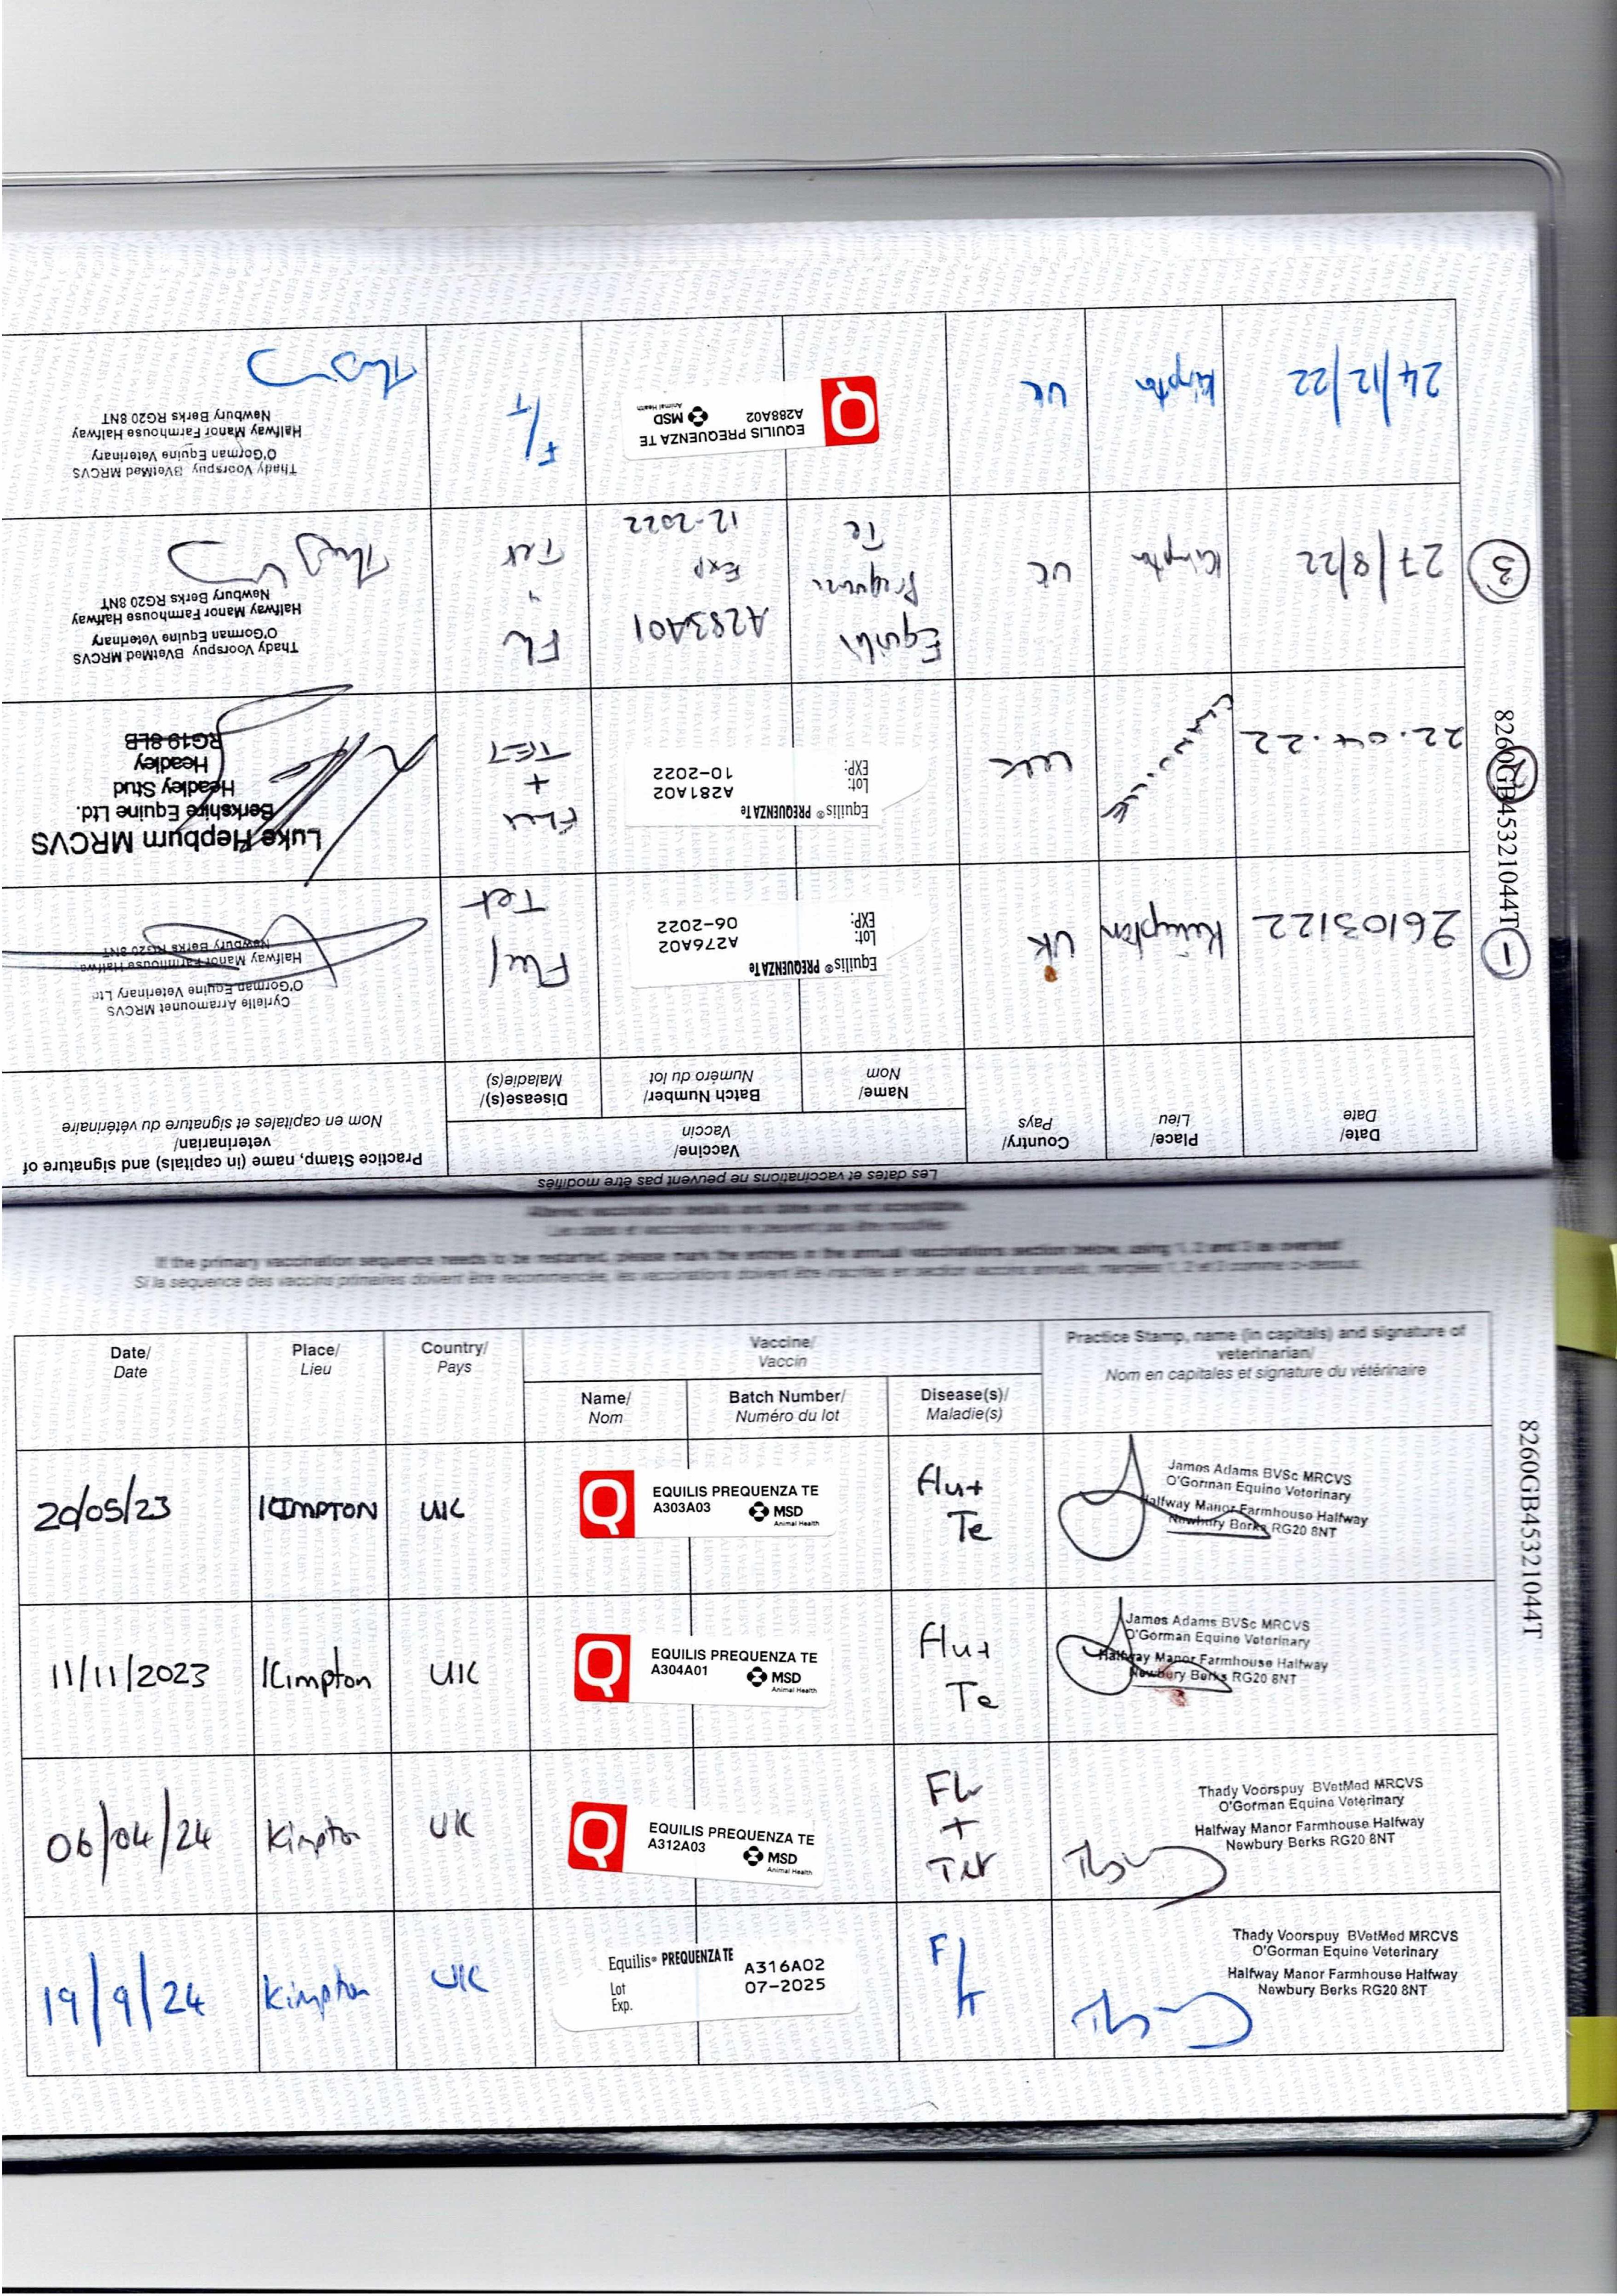 Les dates et vaccinations ne peuvent pas être modifiés
Date/
Date
Place/
Lieu
Country/
Pays
Vaccine/
Vaccin
Name/
Nom
Batch Number/
Numéro du lot
Disease(s)/
Maladie(s)
Practice Stamp, name (in capitals) and signature of
veterinarian/
Nom en capitales et signature du vétérinaire
1
26/03/22
Kimpton
UK
Equilis® PREQUENZA Te
Lot: A276A02
EXP: 06-2022
Flu/
Tet
Cyrielle Arramounet MRCVS
O'Gorman Equine Veterinary Ltd
Halfway Manor Farmhouse Halfway
Newbury Berks RG20 8NT
22.04.22
UK
Equilis® PREQUENZA Te
Lot: A281A02
EXP: 10-2022
Flu
+
TET
Luke Hepburn MRCVS
Berkshire Equine Ltd.
Headley Stud
Headley
RG19 8LB
3
27/8/22
Kimpton
UK
Equilis
Prequenza
Te
A283A01
Exp
12-2022
Flu
+
Tet
Thady Voorspuy BVetMed MRCVS
O'Gorman Equine Veterinary
Halfway Manor Farmhouse Halfway
Newbury Berks RG20 8NT
24/12/22
Kimpton
UK
Q
EQUILIS PREQUENZA TE
A288A02
MSD
Animal Health
F/T
Thady Voorspuy BVetMed MRCVS
O'Gorman Equine Veterinary
Halfway Manor Farmhouse Halfway
Newbury Berks RG20 8NT
8260GB45321044T
Altered vaccination details and dates are not acceptable.
Les dates et vaccinations ne peuvent pas être modifiés
If the primary vaccination sequence needs to be restarted, please mark the entries in the annual vaccinations section below, using 1, 2 and 3 as overleaf
Si la sequence des vaccins primaires doivent être recommencée, les vaccinations doivent être inscrites en section vaccins annuels, marquées 1, 2 et 3 comme ci-dessus.
Date/
Date
Place/
Lieu
Country/
Pays
Vaccine/
Vaccin
Name/
Nom
Batch Number/
Numéro du lot
Disease(s)/
Maladie(s)
Practice Stamp, name (in capitals) and signature of
veterinarian/
Nom en capitales et signature du vétérinaire
20/05/23
KIMPTON
UK
Q
EQUILIS PREQUENZA TE
A303A03
MSD
Animal Health
Flu+
Te
James Adams BVSc MRCVS
O'Gorman Equine Veterinary
Halfway Manor Farmhouse Halfway
Newbury Berks RG20 8NT
11/11/2023
Kimpton
UK
Q
EQUILIS PREQUENZA TE
A304A01
MSD
Animal Health
Flu+
Te
James Adams BVSc MRCVS
O'Gorman Equine Veterinary
Halfway Manor Farmhouse Halfway
Newbury Berks RG20 8NT
06/04/24
Kimpton
UK
Q
EQUILIS PREQUENZA TE
A312A03
MSD
Animal Health
Flu
+
Tet
Thady Voorspuy BVetMed MRCVS
O'Gorman Equine Veterinary
Halfway Manor Farmhouse Halfway
Newbury Berks RG20 8NT
19/9/24
Kimpton
UK
Equilis® PREQUENZA TE
Lot A316A02
Exp. 07-2025
F/T
Thady Voorspuy BVetMed MRCVS
O'Gorman Equine Veterinary
Halfway Manor Farmhouse Halfway
Newbury Berks RG20 8NT
8260GB45321044T